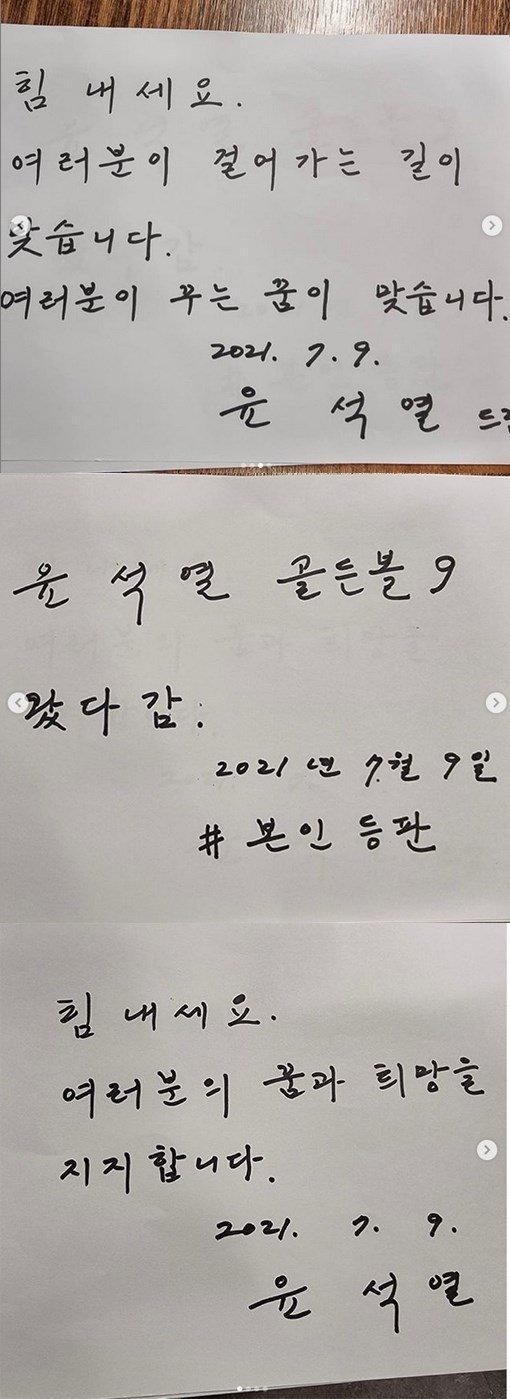 힘 내세요.
여러분이 걸어가는 길이
맞습니다.
여러분이 꾸는 꿈이 맞습니다.
2021. 7. 9.
윤 석 열 드림
윤 석 열 골든볼 9
왔다 감.
2021년 7월 9일
# 본인 등판
힘 내세요.
여러분의 꿈과 희망을
지지합니다.
2021. 7. 9.
윤 석 열